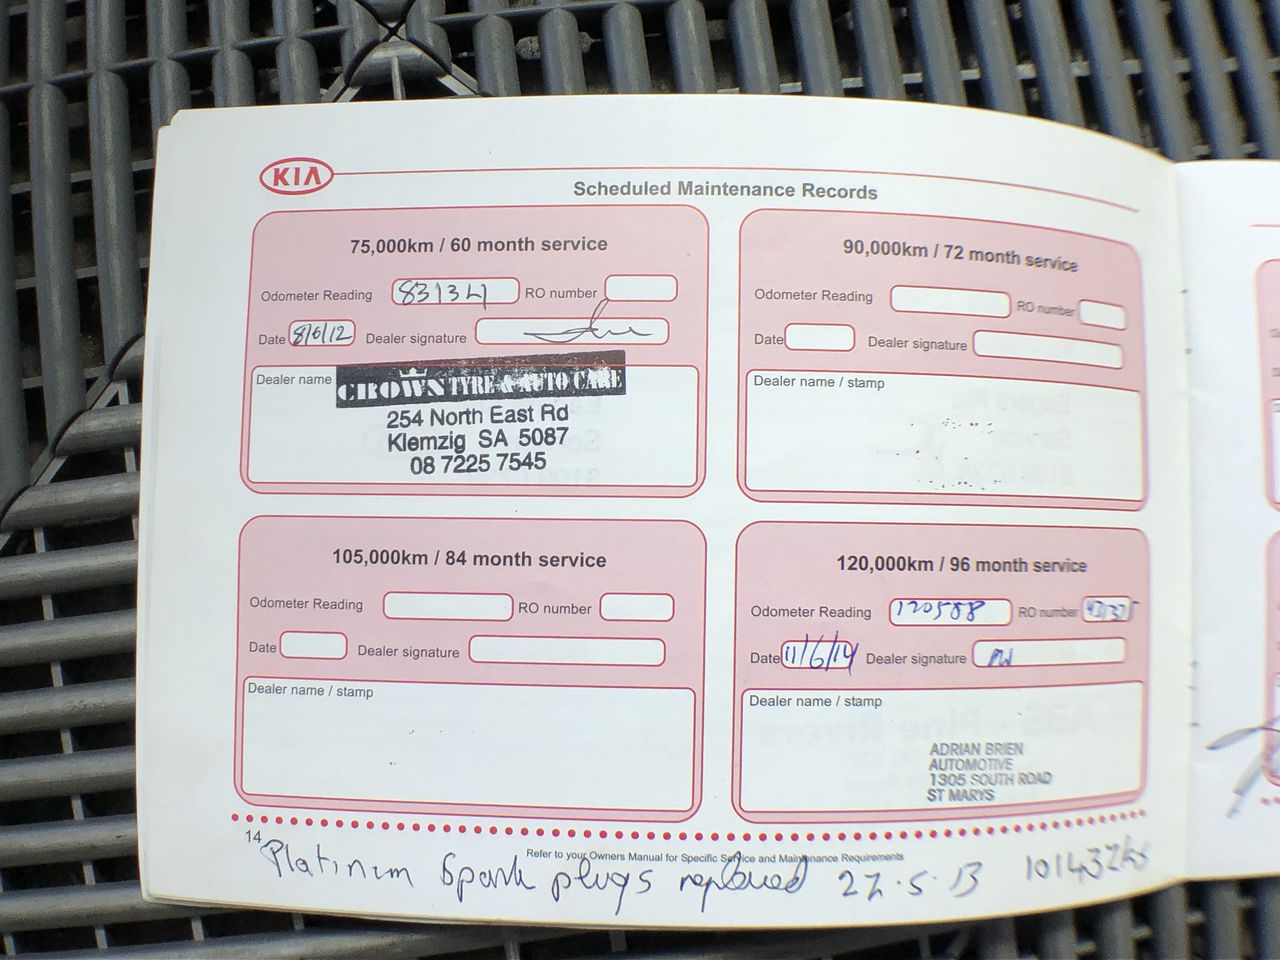 KIA
Scheduled Maintenance Records
75,000km / 60 month service
Odometer Reading 83134 RO number
Date 8/6/12 Dealer signature
Dealer name
CROWN TYRE & AUTO CARE
254 North East Rd
Klemzig SA 5087
08 7225 7545
90,000km / 72 month service
Odometer Reading RO number
Date Dealer signature
Dealer name / stamp
105,000km / 84 month service
Odometer Reading RO number
Date Dealer signature
Dealer name / stamp
120,000km / 96 month service
Odometer Reading 120588 RO number
Date 11/6/14 Dealer signature
Dealer name / stamp
ADRIAN BRIEN
AUTOMOTIVE
1305 SOUTH ROAD
ST MARYS
14
Refer to your Owners Manual for Specific Service and Maintenance Requirements
Platinum Spark plugs replaced 27.5.13 101432km